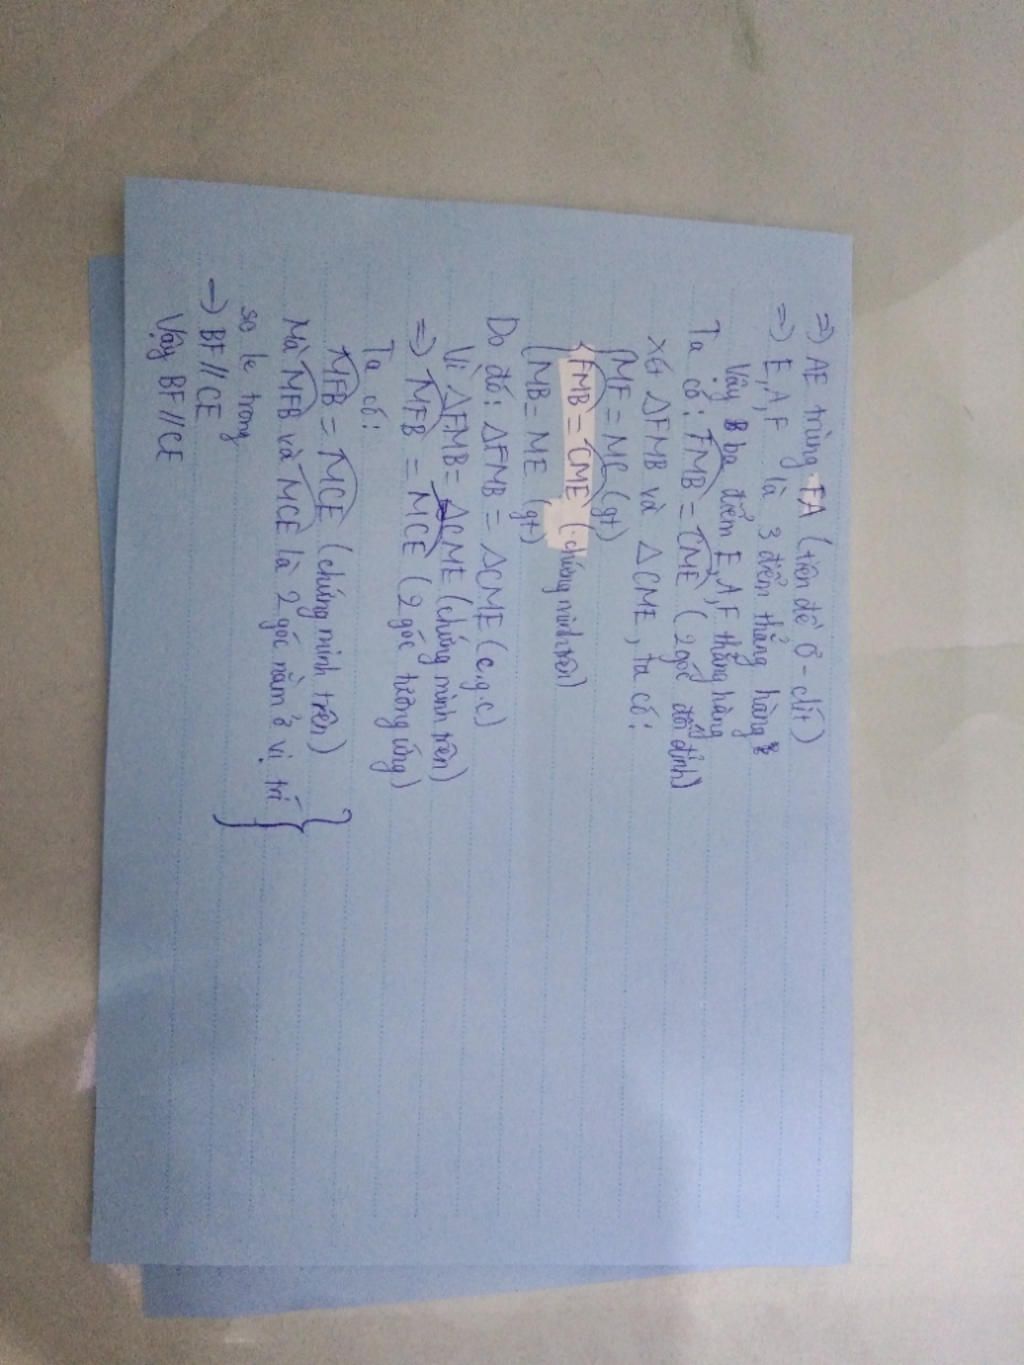 =) AE trùng FA (tiên đề Ơ-clít)
=) E, A, F là 3 điểm thẳng hàng
Vậy ba điểm E, A, F thẳng hàng
Ta có: FMB = CME (2 góc đối đỉnh)
Xét ΔFMB và ΔCME, ta có:
MF = MC (gt)
FMB = CME (chứng minh trên)
MB = ME (gt)
Do đó: ΔFMB = ΔCME (c.g.c)
Vì ΔFMB = ΔCME (chứng minh trên)
=) MFB = MCE (2 góc tương ứng)
Ta có:
MFB = MCE (chứng minh trên)
Mà MFB và MCE là 2 góc nằm ở vị trí
so le trong
=) BF // CE
Vậy BF // CE